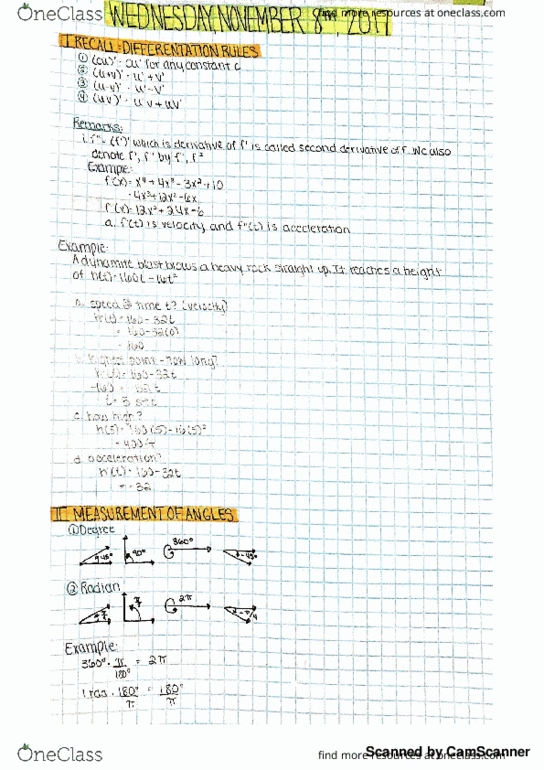 OneClass
find more resources at oneclass.com
WEDNESDAY, NOVEMBER 8TH, 2017
I RECALL: DIFFERENTIATION RULES
① (cu)' = cu' for any constant c
② (u+v)' = u' + v'
③ (u-v)' = u' - v'
④ (uv)' = u'v + uv'
Remarks:
i. f'' = (f')' which is derivative of f' is called second derivative of f. We also
denote f', f'' by f¹, f²
Example:
f(x) = x⁴ + 4x³ - 3x² + 10
= 4x³ + 12x² - 6x
f''(x) = 12x² + 24x - 6
a. f'(t) is velocity and f''(t) is acceleration
Example:
A dynamite blast blows a heavy rock straight up. It reaches a height
of h(t) = 160t - 16t²
a. speed @ time t? (velocity)
h'(t) = 160 - 32t
= 160 - 32(0)
= 160
b. highest point - how long?
h'(t) = 160 - 32t
-160 = -32t
t = 5 sec
c. how high?
h(5) = 160(5) - 16(5)²
= 400 ft
d. acceleration?
h'(t) = 160 - 32t
= -32
II MEASUREMENT OF ANGLES
① Degree
45° 90° 360° -45°
② Radian
π/4 π/2 2π -π/4
Example:
360° · π/180° = 2π
1 rad · 180°/π = 180°/π
OneClass
find more resources at oneclass.com
Scanned by CamScanner